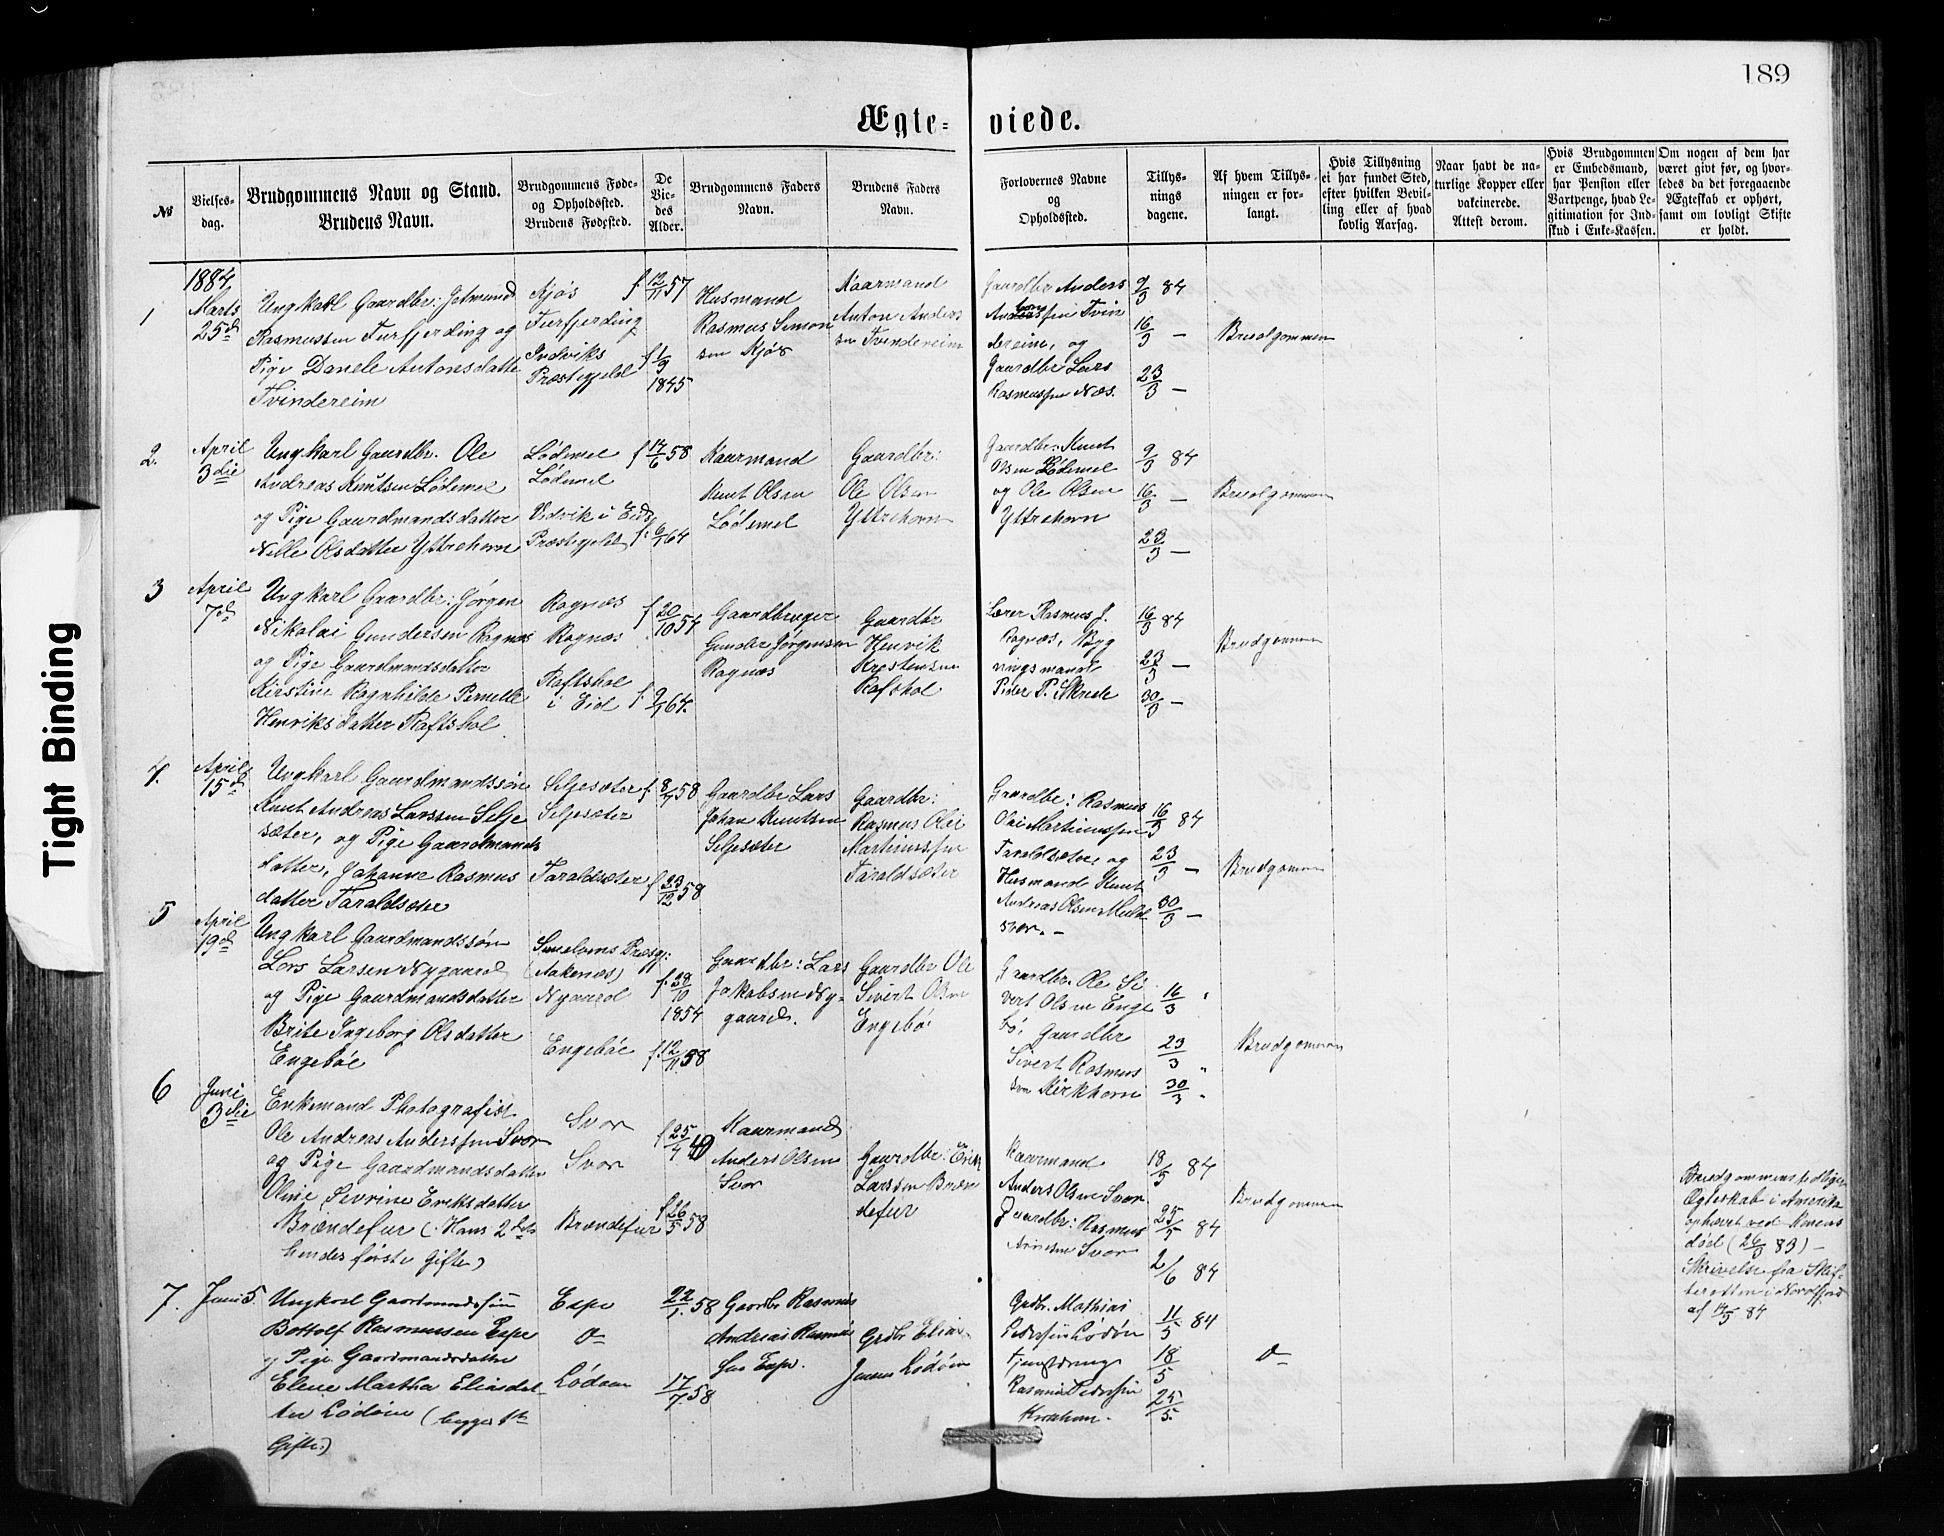 189
Ægte-
viede.
№
Vielses-
dag.
Brudgommens Navn og Stand.
Brudens Navn.
Brudgommens Føde-
og Opholdssted.
Brudens Fødested.
De
Vie-
des
Alder.
Brudgommens Faders
Navn.
Brudens Faders
Navn.
Forlovernes Navne
og
Opholdssted.
Tillys-
nings
dagene.
Af hvem Tillys-
ningen er for-
langt.
Hvis Tillysning
ei har fundet Sted,
efter hvilken Bevil-
ling eller af hvad
lovlig Aarsag.
Naar havt de na-
turlige Kopper eller
vakcinerede.
Attest derom.
Hvis Brudgommen
er Embedsmand,
har Pension eller
Vartpenge, hvad Le-
gitimation for Ind-
skud i Enke-Kassen.
Om nogen af dem har
været givt før, og hvor-
ledes da det foregaaende
Ægteskab er ophørt,
samt om lovligt Skifte
er holdt.
1
1884
Marts
25de
Ungkarl Gaardbr: Jetmund
Rasmussen Furfjerding og
Pige Danele Antonsdatter
Tvindereim
Kjøs
Furfjerding
Indviks
Præstegjeld
f 12/11 57
f 1/9
1845
Husmand
Rasmus Simon
sen Kjøs
Kaarmand
Anton Anders
sen Tvindereim
Gaardbr Anders
Antonssen Tvin
dereim, og
Gaardbr Lars
Rasmussen Næs.
9/3 84
16/3 —
23/3 —
Brudgommen
2.
April
3die
Ungkarl Gaardbr. Ole
Andreas Knutsen Lødemel
og Pige Gaardmandsdatter
Nille Olsdatter Yttrehorn
Lødemel
Lødemel
Vedvik i Eids
Præstegjeld
f 14/6 58
f. 6/1 64
Kaarmand
Knut Olsen
Lødemel
Gaardbr:
Ole Olsen
Yttrehorn
Gaardbr: Knut
Olsen Lødemel
og Ole Olsen
Yttrehorn
9/3 84
16/3 —
23/3 —
Brudgommen
3
April
7de
Ungkarl Gaardbr: Jørgen
Nikolai Gundersen Rognæs
og Pige Gaardmandsdatter
Kirstine Ragnhilde Pernelle
Henriksdatter Raftshol
Rognæs
Rognæs
Raftshol
i Eid
f 20/10 54
f. 9/1 64.
Gaardbruger
Gunder Jørgensen
Rognæs
Gaardbr
Henvik
Krestensen
Rafshol
Lærer Rasmus J.
Rognæs, Byg
ningsmand
Peder P. Skrede
16/3 84
23/3 —
30/3 —
Brudgommen
4.
April
15de
Ungkarl Gaardmandssøn
Knut Andreas Larssen Selje
sæter, og Pige Gaardmands
datter, Johanne Rasmus
datter Taraldsæter
Seljesæter
Seljesæter
Taraldsæter
f 8/7 58
f 23/12 58
Gaardbr Lars
Johan Knutsen
Seljesæter
Gaardbr:
Rasmus Olai
Martinussen
Taraldsæter
Gaardbr: Rasmus
Olai Martinussen
Taraldsæter og
Husmand Knut
Andreas Olsen Muld
svor. —
16/3 84
23/3 —
30/3 —
Brudgommen
5
April
19de
Ungkarl Gaardmandssøn
Lars Larsen Nygaard
og Pige Gaardmandsdatter
Brite Ingeborg Olsdatter
Engebøe
Sunelvens Præstg:
(Aakenæs)
Nygaard
Engebøe
f. 28/10
1854
f. 12/11 58
Gaardbr: Lars
Jakobsen Ny-
gaard.
Gaardbr Ole
Sivert Olsen
Engebø
Gaardbr. Ole Si
vert Olsen Enge
bø, Gaardbr
Sivert Rasmus
sen Kirkhorn
16/3 "
23/3 "
30/3 "
Brudgommen
6
Juni
3die
Enkemand Photografist
Ole Andreas Anderssen Svor
og Pige Gaardmandsdatter
Oline Sevrine Eriksdatter
Brændefur (Hans 2det
hendes første Gifte)
Svor
Svor
Brændefur
f 25/7 40
f 26/5 58
Kaarmand
Anders Olsen
Svor
Gaardbr: Erik
Larssen Bræn
defur
Kaarmand
Anders Olsen Svor
Gaardbr: Rasmus
Arnesen Svor
18/5 84
25/5 84
2/6 84
Brudgommen
Brudgommens tidligere
Ægteskab i Amerika
ophævet ved Konens
død (26/3 83) —
Skrivelse fra Skif-
teretten i Nordfjord
af 14/5 84
7.
Juni 5.
Ungkarl Gaardmandssøn
Bottolf Rasmussen Espe
og Pige Gaardmandsdatter
Elene Martha Eliasdat
ter Lødøen (begges 1ste
Gifte)
Espe
do
Lødøen
22/1 58
17/7 58
Gaardbr Rasmus
Andreas Rasmus
sen Espe.
Grdbr Elias
Jensen Lødøen
Grdbr. Mathias
Pederssen Lødøen
Tjenstdreng
Rasmus Pederssen
11/5 84
18/5
25/5.
do
Tight Binding